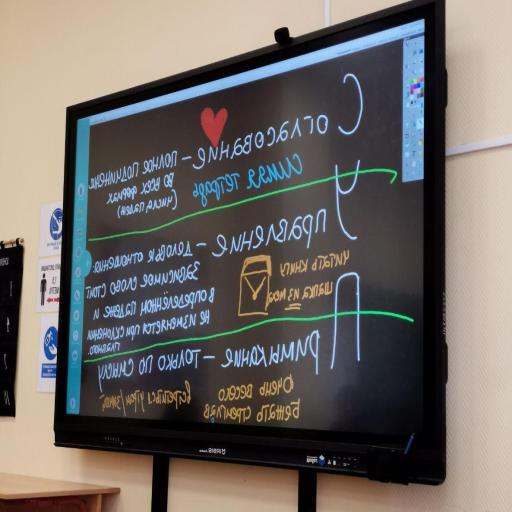 Согласование – полное подчинение
во всех формах
(число, падеж)
синяя тетрадь
Управление – деловые отношения:
зависимое слово стоит
в определённом падеже и
не изменяется при склонении
главного.
читать книгу
шапка из меха
Примыкание – только по смыслу
Очень весело
Бежать стремглав